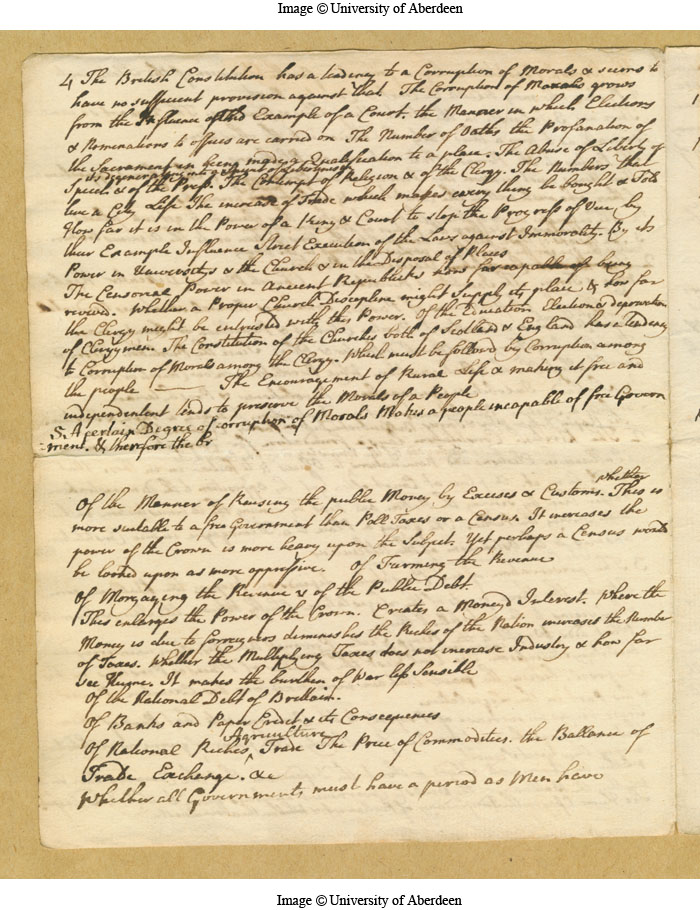 Image © University of Aberdeen
4 The British Constitution has a tendency to a Corruption of Morals & seems to
have no sufficient provision against that The Corruption of Morals grows
from the Influence of the Example of a Court, the Manner in which Elections
& Nominations to offices are carried on The Number of Oaths the Profanation of
the Sacrament in being made a Qualification to a place. The Abuse of Liberty of
its degenerating into
Speech & of the Press. The Contempt of Religion & of the Clergy. The Numbers that
live a City Life The increase of Trade which makes every thing be bought & Sold
How far it is in the Power of a King & Court to stop the Progress of Vice, by
their Example Influence Strict Execution of the Laws against Immorality. By its
Power in Universitys & the Church & in the Disposal of Places
The Censorial Power in Ancient Republicks how far capable of being
revived. Whether a Proper Church Discipline might Supply its place & how far
the Clergy might be intrusted with this Power. Of the Education Election & deprivation
of Clergymen. The Constitution of the Churches both of Scotland & England has a tendency
to Corruption of Morals among the Clergy. Which must be followd by Corruption among
the people — The Encouragement of Rural Life & making it free and
independent tends to preserve the Morals of a People
5. A certain Degree of corruption of Morals Makes a people incapable of free Govern
-ment. & therefore the Br
whether
Of the Manner of Raising the public Money by Excises & Customs. This is
more suitable to a free Government than Poll Taxes or a Census. It increases the
power of the Crown is more heavy upon the Subject. Yet perhaps a Census would
be looked upon as more oppressive. Of Farming the Revenue
Of Morgaging the Revenue & of the Public Debt
This enlarges the Power of the Crown. Creates a Moneyd Interest. Where the
Money is due to foreigners diminishes the Riches of the Nation increases the Number
of Taxes. Whether the Multiplying Taxes does not increase Industry & how far
see Hume. It makes the burthen of War less Sensible
Of the National Debt of Brittain.
Of Banks and Paper Credit & its Consequences
Agriculture
Of National Riches, Trade The Price of Commodities. the Ballance of
Trade Exchange. &c
Whether all Governments must have a period as Men have
Image © University of Aberdeen